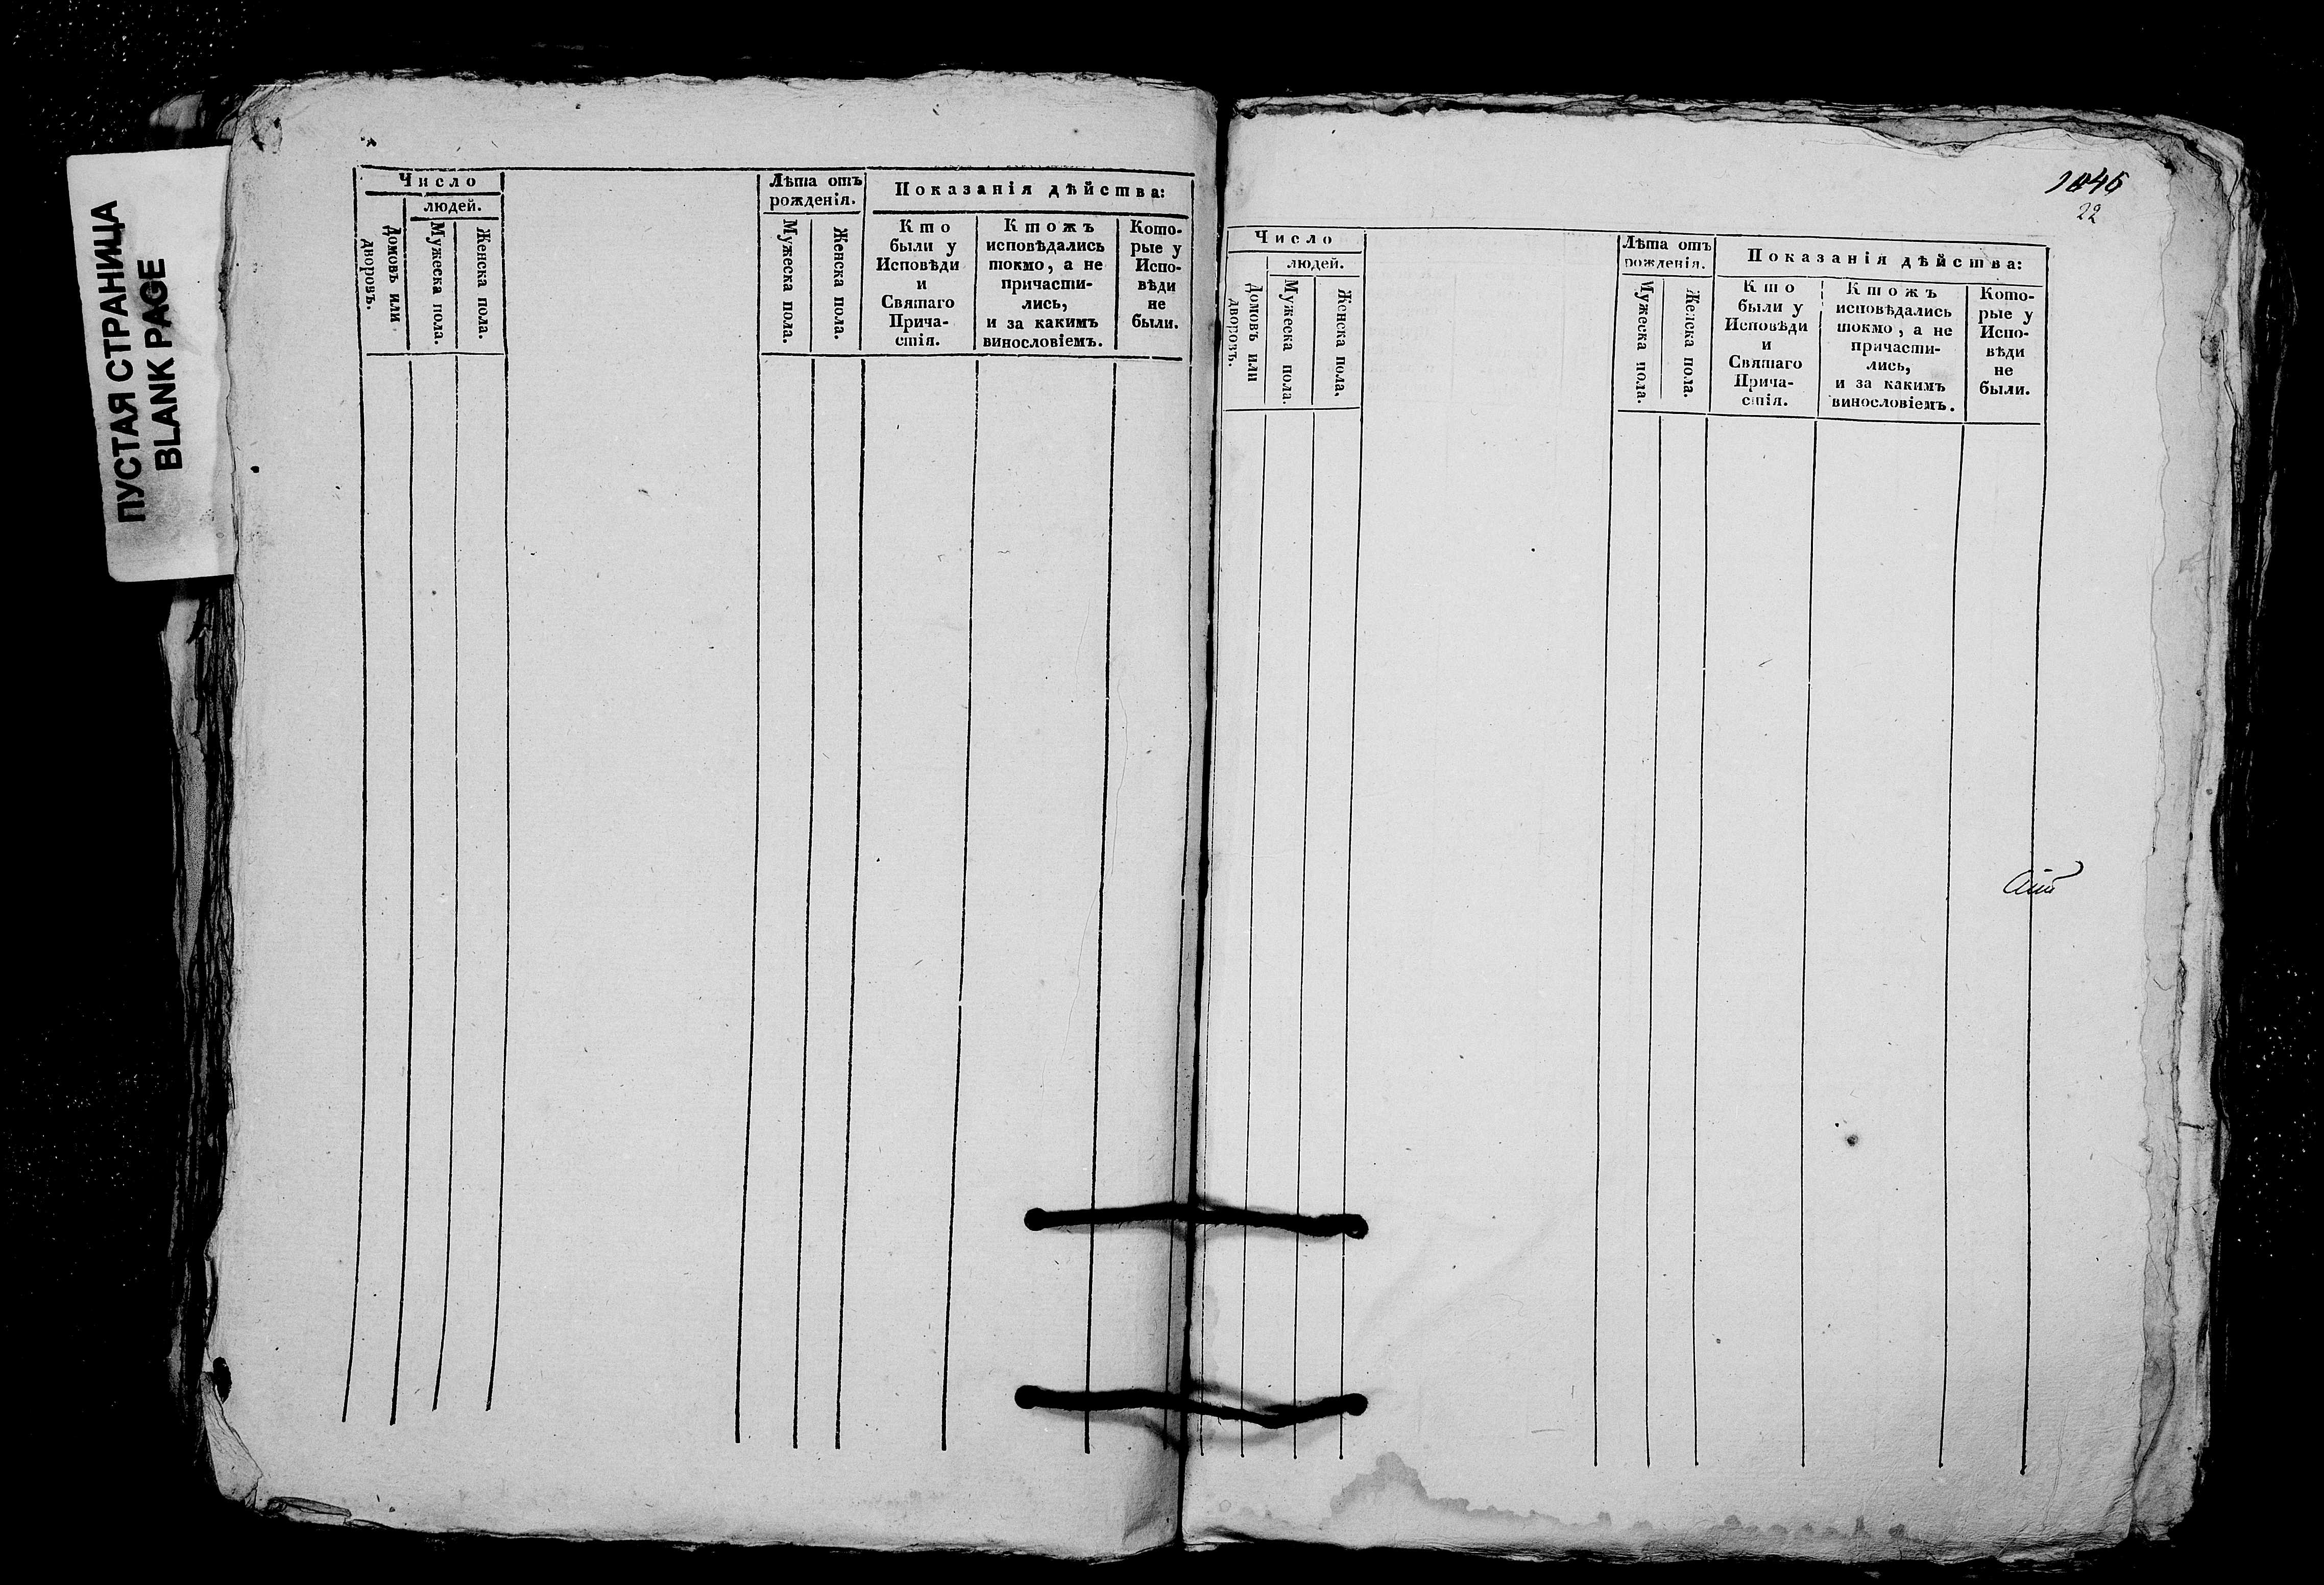 ПУСТАЯ СТРАНИЦА
BLANK PAGE
Число
людей.
Домовъ или
дворовъ.
Мужеска пола.
Женска пола.
Лѣта отъ
рожденія.
Мужеска пола.
Женска пола.
Показанія дѣйства:
Кто
были у
Исповѣди
и
Святаго
Прича-
стія.
Ктожъ
исповѣдались
токмо, а не
причасти-
лись,
и за какимъ
винословіемъ.
Кото-
рые у
Испо-
вѣди
не
были.
22
Число
людей.
Домовъ или
дворовъ.
Мужеска пола.
Женска пола.
Лѣта отъ
рожденія.
Мужеска пола.
Женска пола.
Показанія дѣйства:
Кто
были у
Исповѣди
и
Святаго
Прича-
стія.
Ктожъ
исповѣдались
токмо, а не
причасти-
лись,
и за какимъ
винословіемъ.
Кото-
рые у
Испо-
вѣди
не
были.